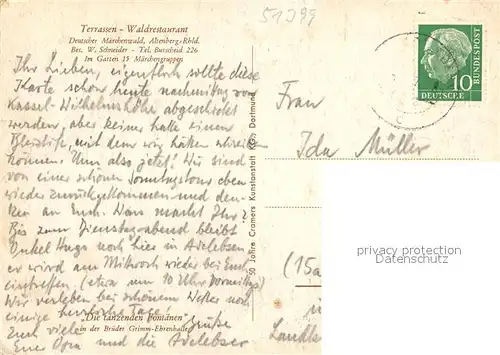 51J99
Terrassen - Waldrestaurant
Deutscher Märchenwald, Altenberg-Rhld.
Bes. W. Schneider - Tel. Burscheid 226
Im Garten 15 Märchengruppen
Ihr Lieben, eigentlich sollte diese
Karte schon heute nachmittag von
Kassel-Wilhelmshöhe abgeschickt
werden, aber keiner hatte einen
Bleistift, mit dem wir hätten schreiben
können. Nun also jetzt! Wir sind
von einer schönen Sonntagstour eben
wieder zurückgekommen und den-
ken an Euch. Was macht Ihr?
Bis zum Dienstagabend bleibt
Onkel Hugo noch hier in Adelebsen
er wird am Mittwoch wieder bei Euch
eintreffen. (etwa um 10 Uhr vormittag)
Wir verleben bei schönem Wetter noch
einige herrliche Tage!
Euch viele Grüße
Eure Oma und die Adelebser
"Die tanzenden Fontänen"
in der Brüder Grimm-Ehrenhalle
50 Jahre Cramers Kunstanstalt KG, Dortmund
DEUTSCHE BUNDESPOST
10
Frau
Ida Müller
(15a
in
Landk
privacy protection
Datenschutz